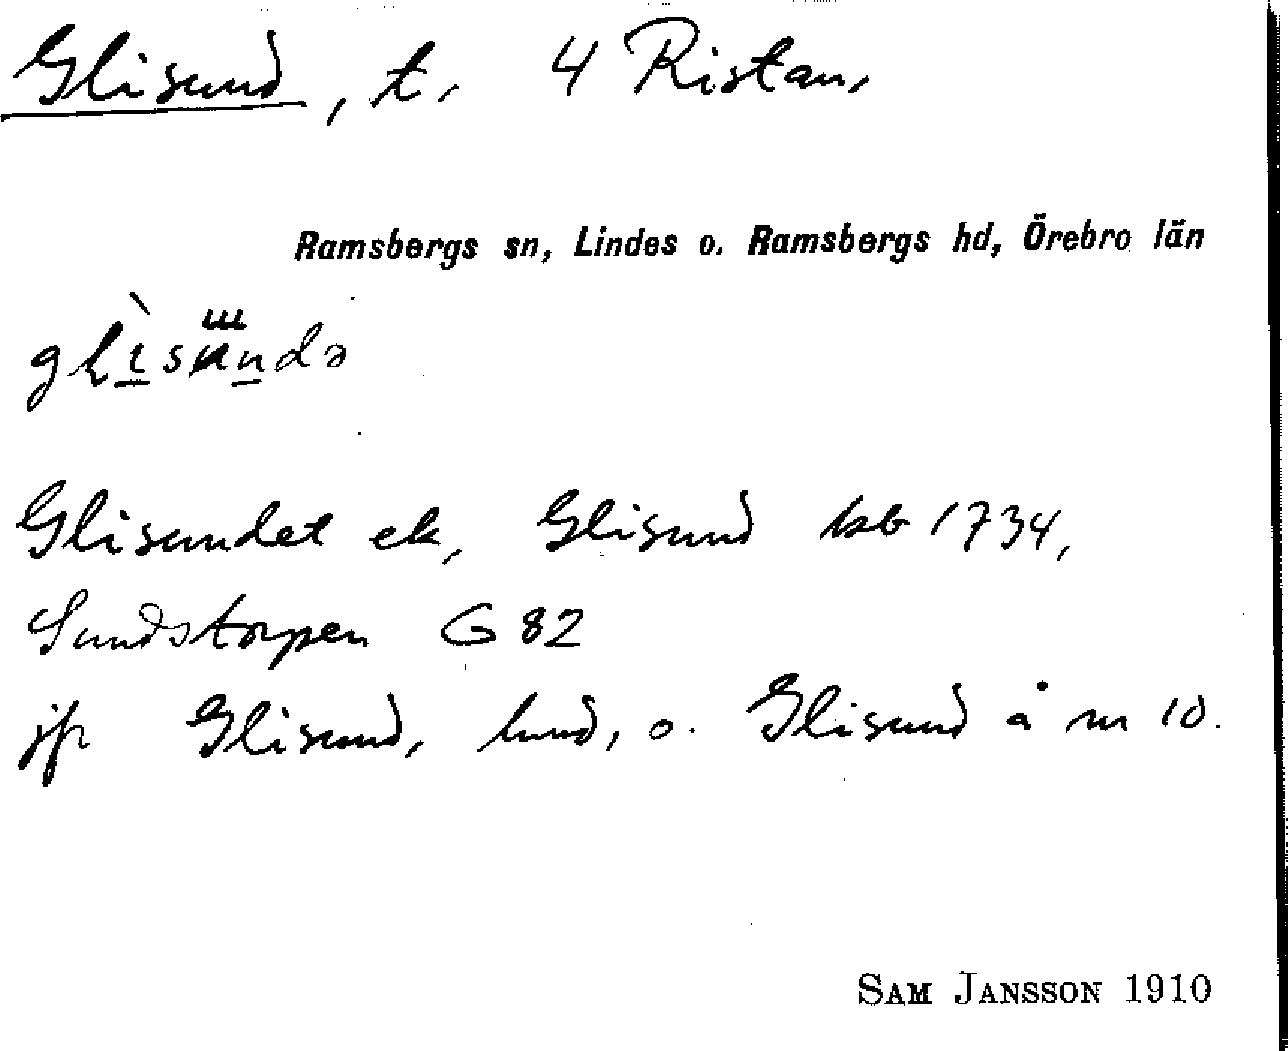 Glisund, t. 4 Ristan,
Ramsbergs sn, Lindes o. Ramsbergs hd, Örebro län
Glisundet ek, Glisund kb 1734,
Sundstorpen G 82
jfr Glisund, hmd, o. Glisund å nr 10.
SAM JANSSON 1910